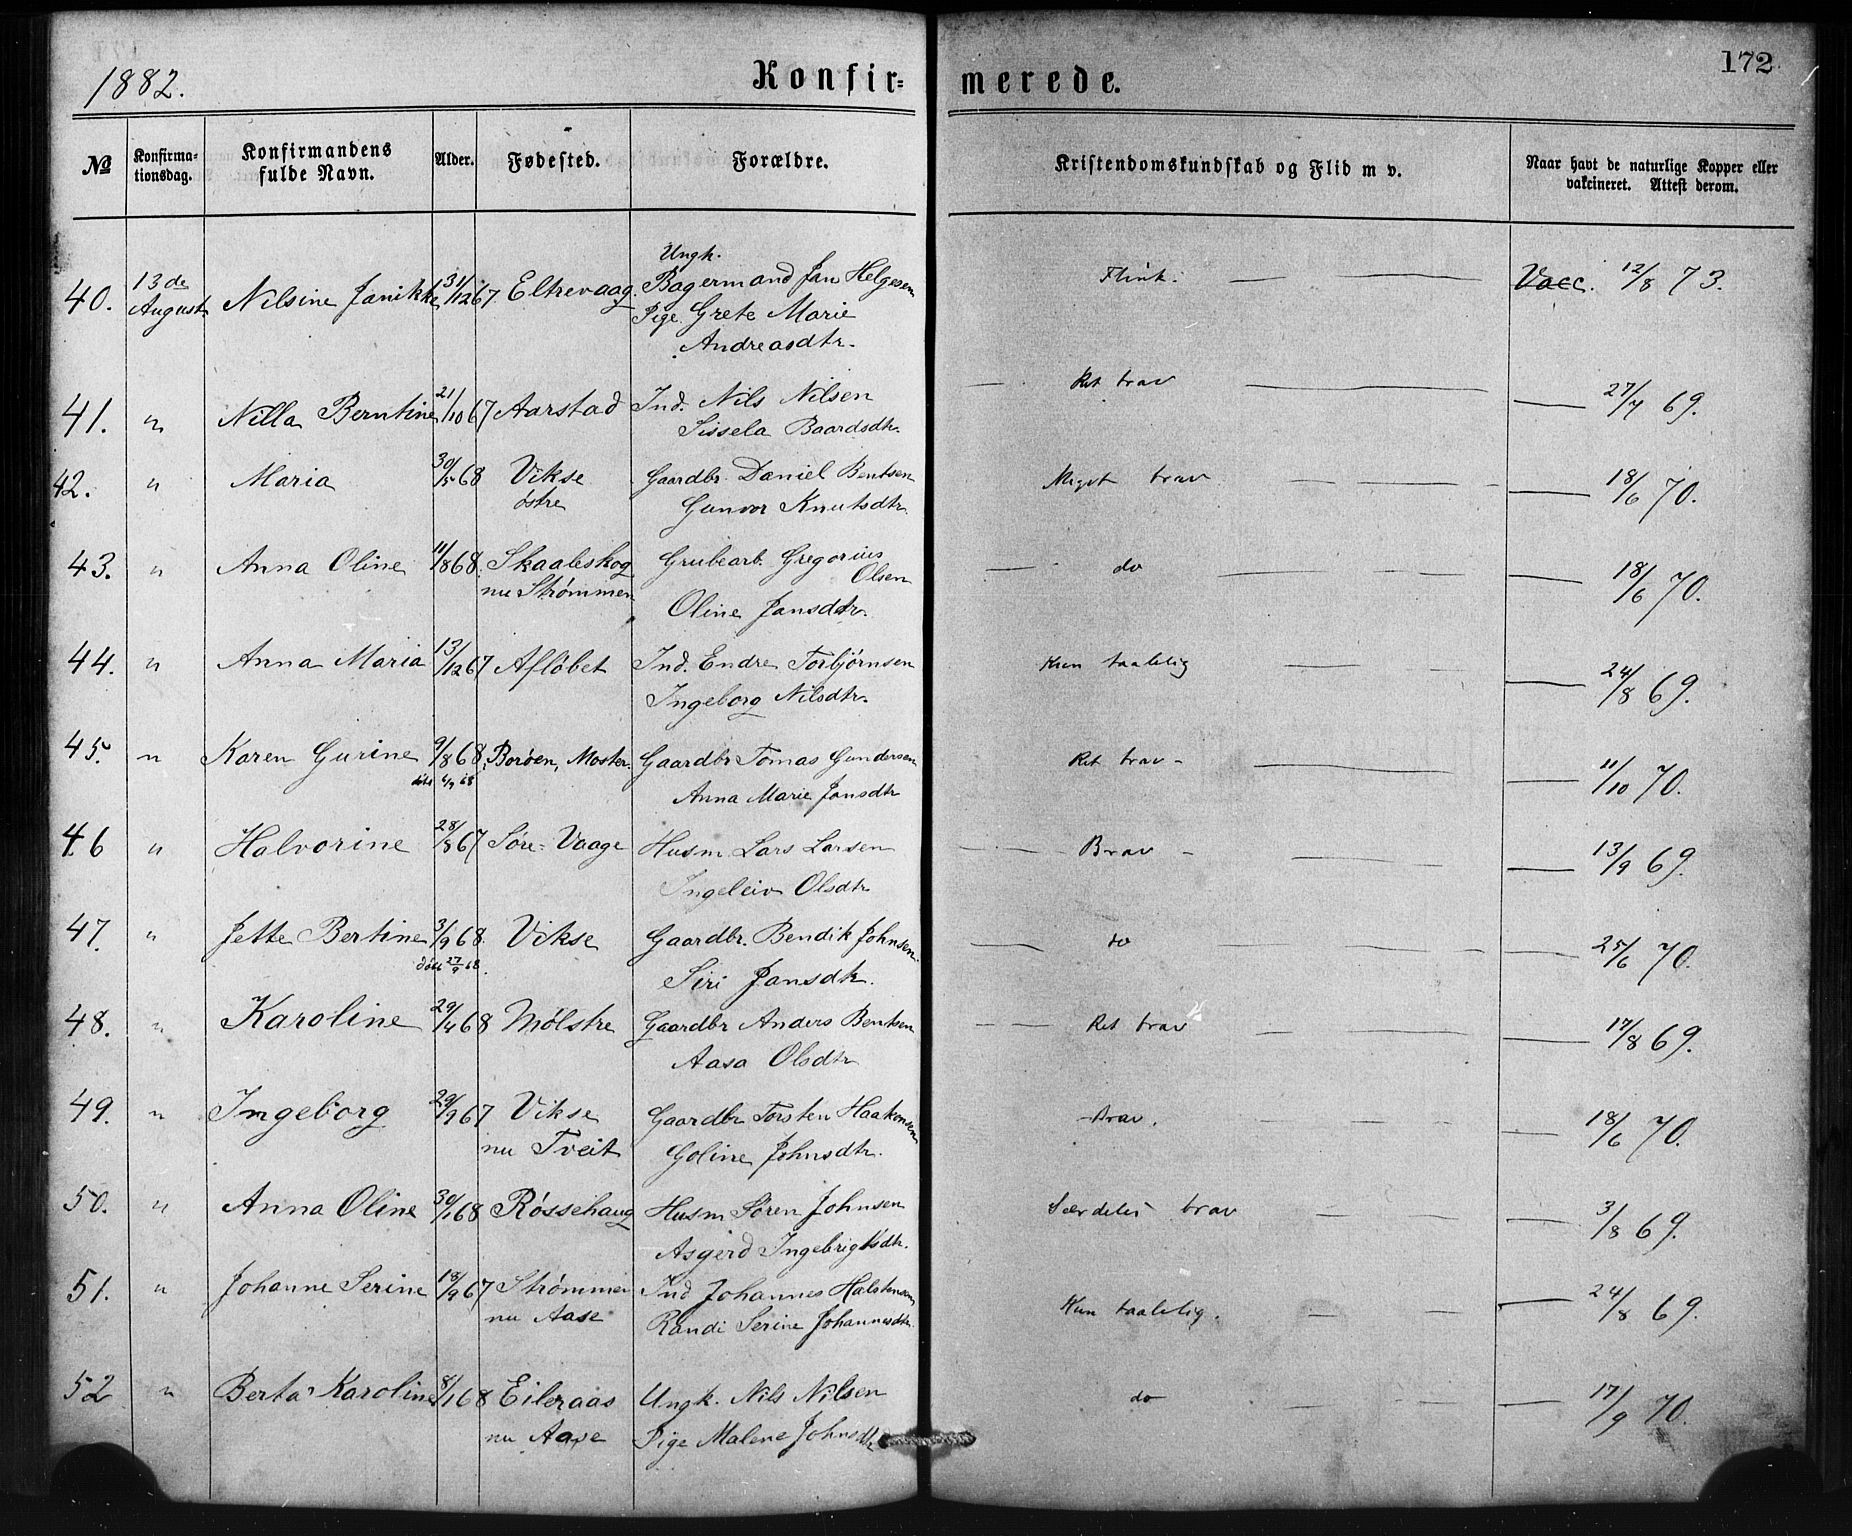 1882.
Konfir=
merede.
172
No
Konfirma-
tionsdag.
Konfirmandens
fulde Navn.
Alder.
Fødested.
Forældre.
Kristendomskundskab og Flid m v.
Naar havt de naturlige Kopper eller
vakcineret. Attest derom.
40. 13de August Nilsine Janikke 31/12 67 Eltrevaag Ungk. Bagermand Jan Helgesen
Pige Grete Marie
Andreasdtr.
Flink. Vacc. 12/8 73.
41. " Nilla Berntine 21/10 67 Aarstad Ind. Nils Nilsen
Sissela Baardsdtr.
Ret brav 27/7 69.
42. " Maria 30/5 68 Vikse Gaardbr. Daniel Bentsen
østre Gunvor Knutsdtr.
Meget brav 18/6 70.
43. " Anna Oline 11/8 68. Skaaleskog Grubearb. Gregorius
Olsen
nu Strømmen Oline Jansdtr.
do 18/6 70.
44. " Anna Maria 13/12 67 Afløbet Ind. Endre Torbjørnsen
Ingeborg Nilsdtr.
Kun taalelig 24/8 69.
45. " Karen Gurine 9/8 68 Borøen, Moster. Gaardbr Tomas Gundersen
68 Anna Marie Jansdtr
Ret brav 11/10 70.
46 " Halvorine 28/8 67 Søre=Vaage Husm. Lars Larsen
Ingeleiv Olsdtr
Brav 13/9 69.
47. " Jette Bertine 3/9 68. Vikse Gaardbr. Bendik Johnsen
døbt 27/9 68. Siri Jansdtr.
do 25/6 70.
48. " Karoline 29/4 68 Mølstre Gaardbr Anders Bentsen
Aasa Olsdtr
Ret brav 17/8 69.
49. " Ingeborg 29/9 67 Vikse Gaardbr Torsten Haakonsen
nu Tveit Goline Johnsdtr.
Brav. 18/6 70.
50. " Anna Oline 30/1 68 Røssehaug Husm Søren Johnsen
Asgerd Ingebrigtsdtr.
Særdeles brav 3/8 69.
51. " Johanne Serine 18/9 67 Strømmen Ind Johannes Halstensen
nu Aase Randi Serine Johannesdtr.
Kun taalelig. 24/8 69.
52 " Berta Karoline 8/1 68 Eileraas Ungk. Nils Nilsen
nu Aase Pige Malene Johnsdtr
do 17/9 70.